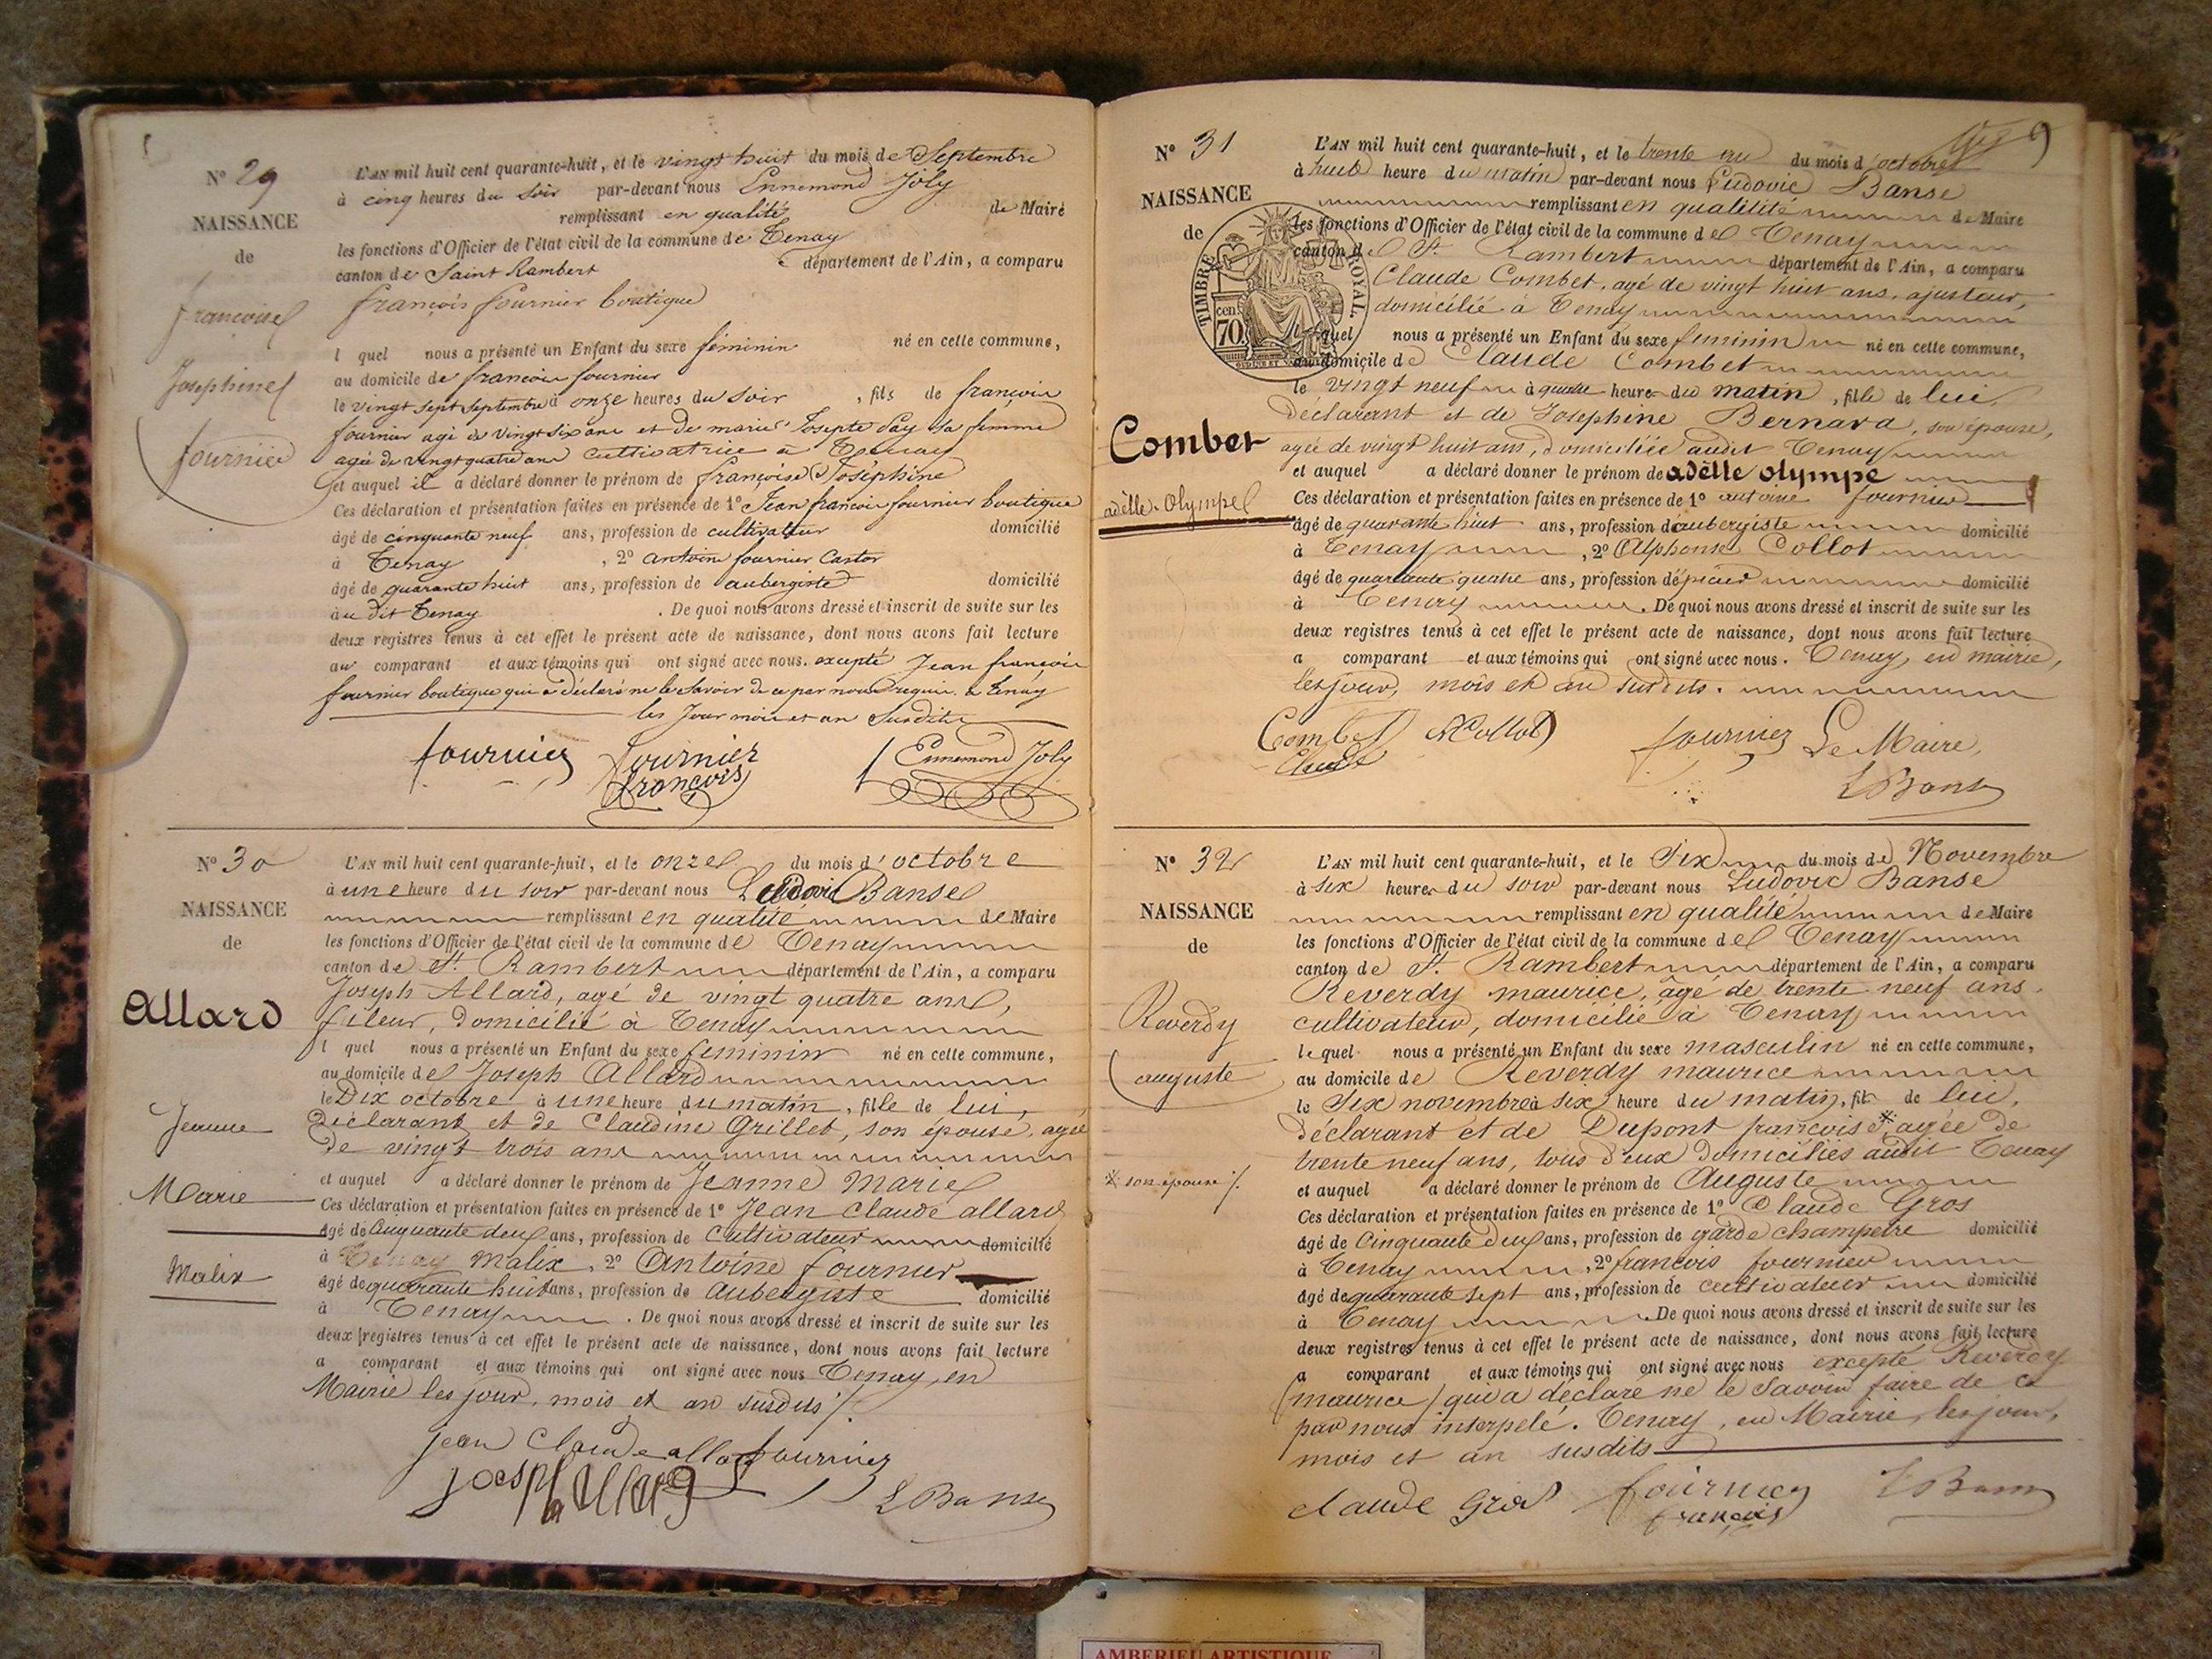 N° 29
NAISSANCE
de
françoise
Josephine
fournier
L'AN mil huit cent quarante-huit, et le vingt huit du mois de Septembre
à cinq heures du soir par-devant nous Ennemond Joly
remplissant en qualité de Maire
les fonctions d'Officier de l'état civil de la commune de Tenay
canton de Saint Rambert département de l'Ain, a comparu
françois fournier boutique
l quel nous a présenté un Enfant du sexe féminin né en cette commune,
au domicile de francois fournier
le vingt sept septembre à onze heures du soir, fils de françois
fournier agé de vingt six ans et de marie Josepte Say sa femme
agée de vingt quatre ans cultivatrice à Tenay
et auquel il a déclaré donner le prénom de françoise Joséphine
Ces déclaration et présentation faites en présence de 1° Jean francois fournier boutique
âgé de cinquante neuf ans, profession de cultivateur domicilié
à Tenay, 2° antoine fournier Castor
âgé de quarante huit ans, profession de aubergiste domicilié
à au dit Tenay. De quoi nous avons dressé et inscrit de suite sur les
deux registres tenus à cet effet le présent acte de naissance, dont nous avons fait lecture
au comparant et aux témoins qui ont signé avec nous. excepté Jean françois
fournier boutique qui a déclaré ne le savoir de ce par nous requis. à Tenay
les Jour mois et an Susdits
fournier fournier françois Ennemond Joly
N° 30
NAISSANCE
de
Allard
Jeanne
Marie
Malix
L'AN mil huit cent quarante-huit, et le onze du mois d'octobre
à une heure du soir par-devant nous Ludovic Banse
remplissant en qualité de Maire
les fonctions d'Officier de l'état civil de la commune de Tenay
canton de St. Rambert département de l'Ain, a comparu
Joseph Allard, agé de vingt quatre ans,
fileur, domicilié à Tenay
l quel nous a présenté un Enfant du sexe feminin né en cette commune,
au domicile de Joseph Allard
le Dix octobre à une heure du matin, fille de lui,
déclarant et de Claudine Grillet, son épouse, agée
de vingt trois ans
et auquel a déclaré donner le prénom de Jeanne Marie
Ces déclaration et présentation faites en présence de 1° Jean Claude allard
âgé de Cinquante deux ans, profession de Cultivateur domicilié
à Tenay Malix, 2° Antoine fournier
âgé de quarante huit ans, profession de Aubergiste domicilié
à Tenay. De quoi nous avons dressé et inscrit de suite sur les
deux registres tenus à cet effet le présent acte de naissance, dont nous avons fait lecture
a comparant et aux témoins qui ont signé avec nous Tenay, en
Mairie les jour, mois et an susdits ./.
jean Claude allard fournier
joesph allard L Banse
N° 31
NAISSANCE
de
TIMBRE ROYAL
70 cen.
Combet
adèlle. Olympe
9
L'AN mil huit cent quarante-huit, et le trente un du mois d'octobre
à huit heure du matin par-devant nous Ludovic Banse
remplissant en qualitité de Maire
les fonctions d'Officier de l'état civil de la commune de Tenay
canton de St. Rambert département de l'Ain, a comparu
Claude Combet, agé de vingt huit ans, ajusteur,
domicilié à Tenay
lequel nous a présenté un Enfant du sexe feminin né en cette commune,
au domicile de Claude Combet
le vingt neuf à quatre heure du matin, fille de lui,
déclarant et de Josephine Bernard, son épouse,
agée de vingt huit ans, domiciliée audit Tenay
et auquel a déclaré donner le prénom de adèlle olympe
Ces déclaration et présentation faites en présence de 1° antoine fournier
âgé de quarante huit ans, profession d'aubergiste domicilié
à Tenay, 2° Alphonse Collot
âgé de quarante quatre ans, profession d'épicier domicilié
à Tenay. De quoi nous avons dressé et inscrit de suite sur les
deux registres tenus à cet effet le présent acte de naissance, dont nous avons fait lecture
a comparant et aux témoins qui ont signé avec nous. Tenay, en mairie,
les jour, mois et an susdits.
Combet Claude Collot fournier Le Maire,
L Banse
N° 32
NAISSANCE
de
Reverdy
auguste
※ son épouse ./.
L'AN mil huit cent quarante-huit, et le Six du mois de Novembre
à six heures du soir par-devant nous Ludovic Banse
remplissant en qualité de Maire
les fonctions d'Officier de l'état civil de la commune de Tenay
canton de St. Rambert département de l'Ain, a comparu
Reverdy maurice, âgé de trente neuf ans.
cultivateur, domicilié à Tenay
le quel nous a présenté un Enfant du sexe masculin né en cette commune,
au domicile de Reverdy maurice
le Six novembre à six heure du matin, fils de lui,
déclarant et de Dupont françoise ※ agée de
trente neuf ans, tous deux domiciliés audit Tenay
et auquel a déclaré donner le prénom de Auguste
Ces déclaration et présentation faites en présence de 1° Claude Gros
âgé de Cinquante deux ans, profession de garde champetre domicilié
à Tenay, 2° francois fournier
âgé de quarante sept ans, profession de cultivateur domicilié
à Tenay. De quoi nous avons dressé et inscrit de suite sur les
deux registres tenus à cet effet le présent acte de naissance, dont nous avons fait lecture
a comparant et aux témoins qui ont signé avec nous excepté Reverdy
(maurice) qui a déclaré ne le savoir faire de ce
par nous interpelé. Tenay, en Mairie, les jour,
mois et an susdits
claude Gros fournier françois L Banse
AMBERIEU ARTISTIQUE